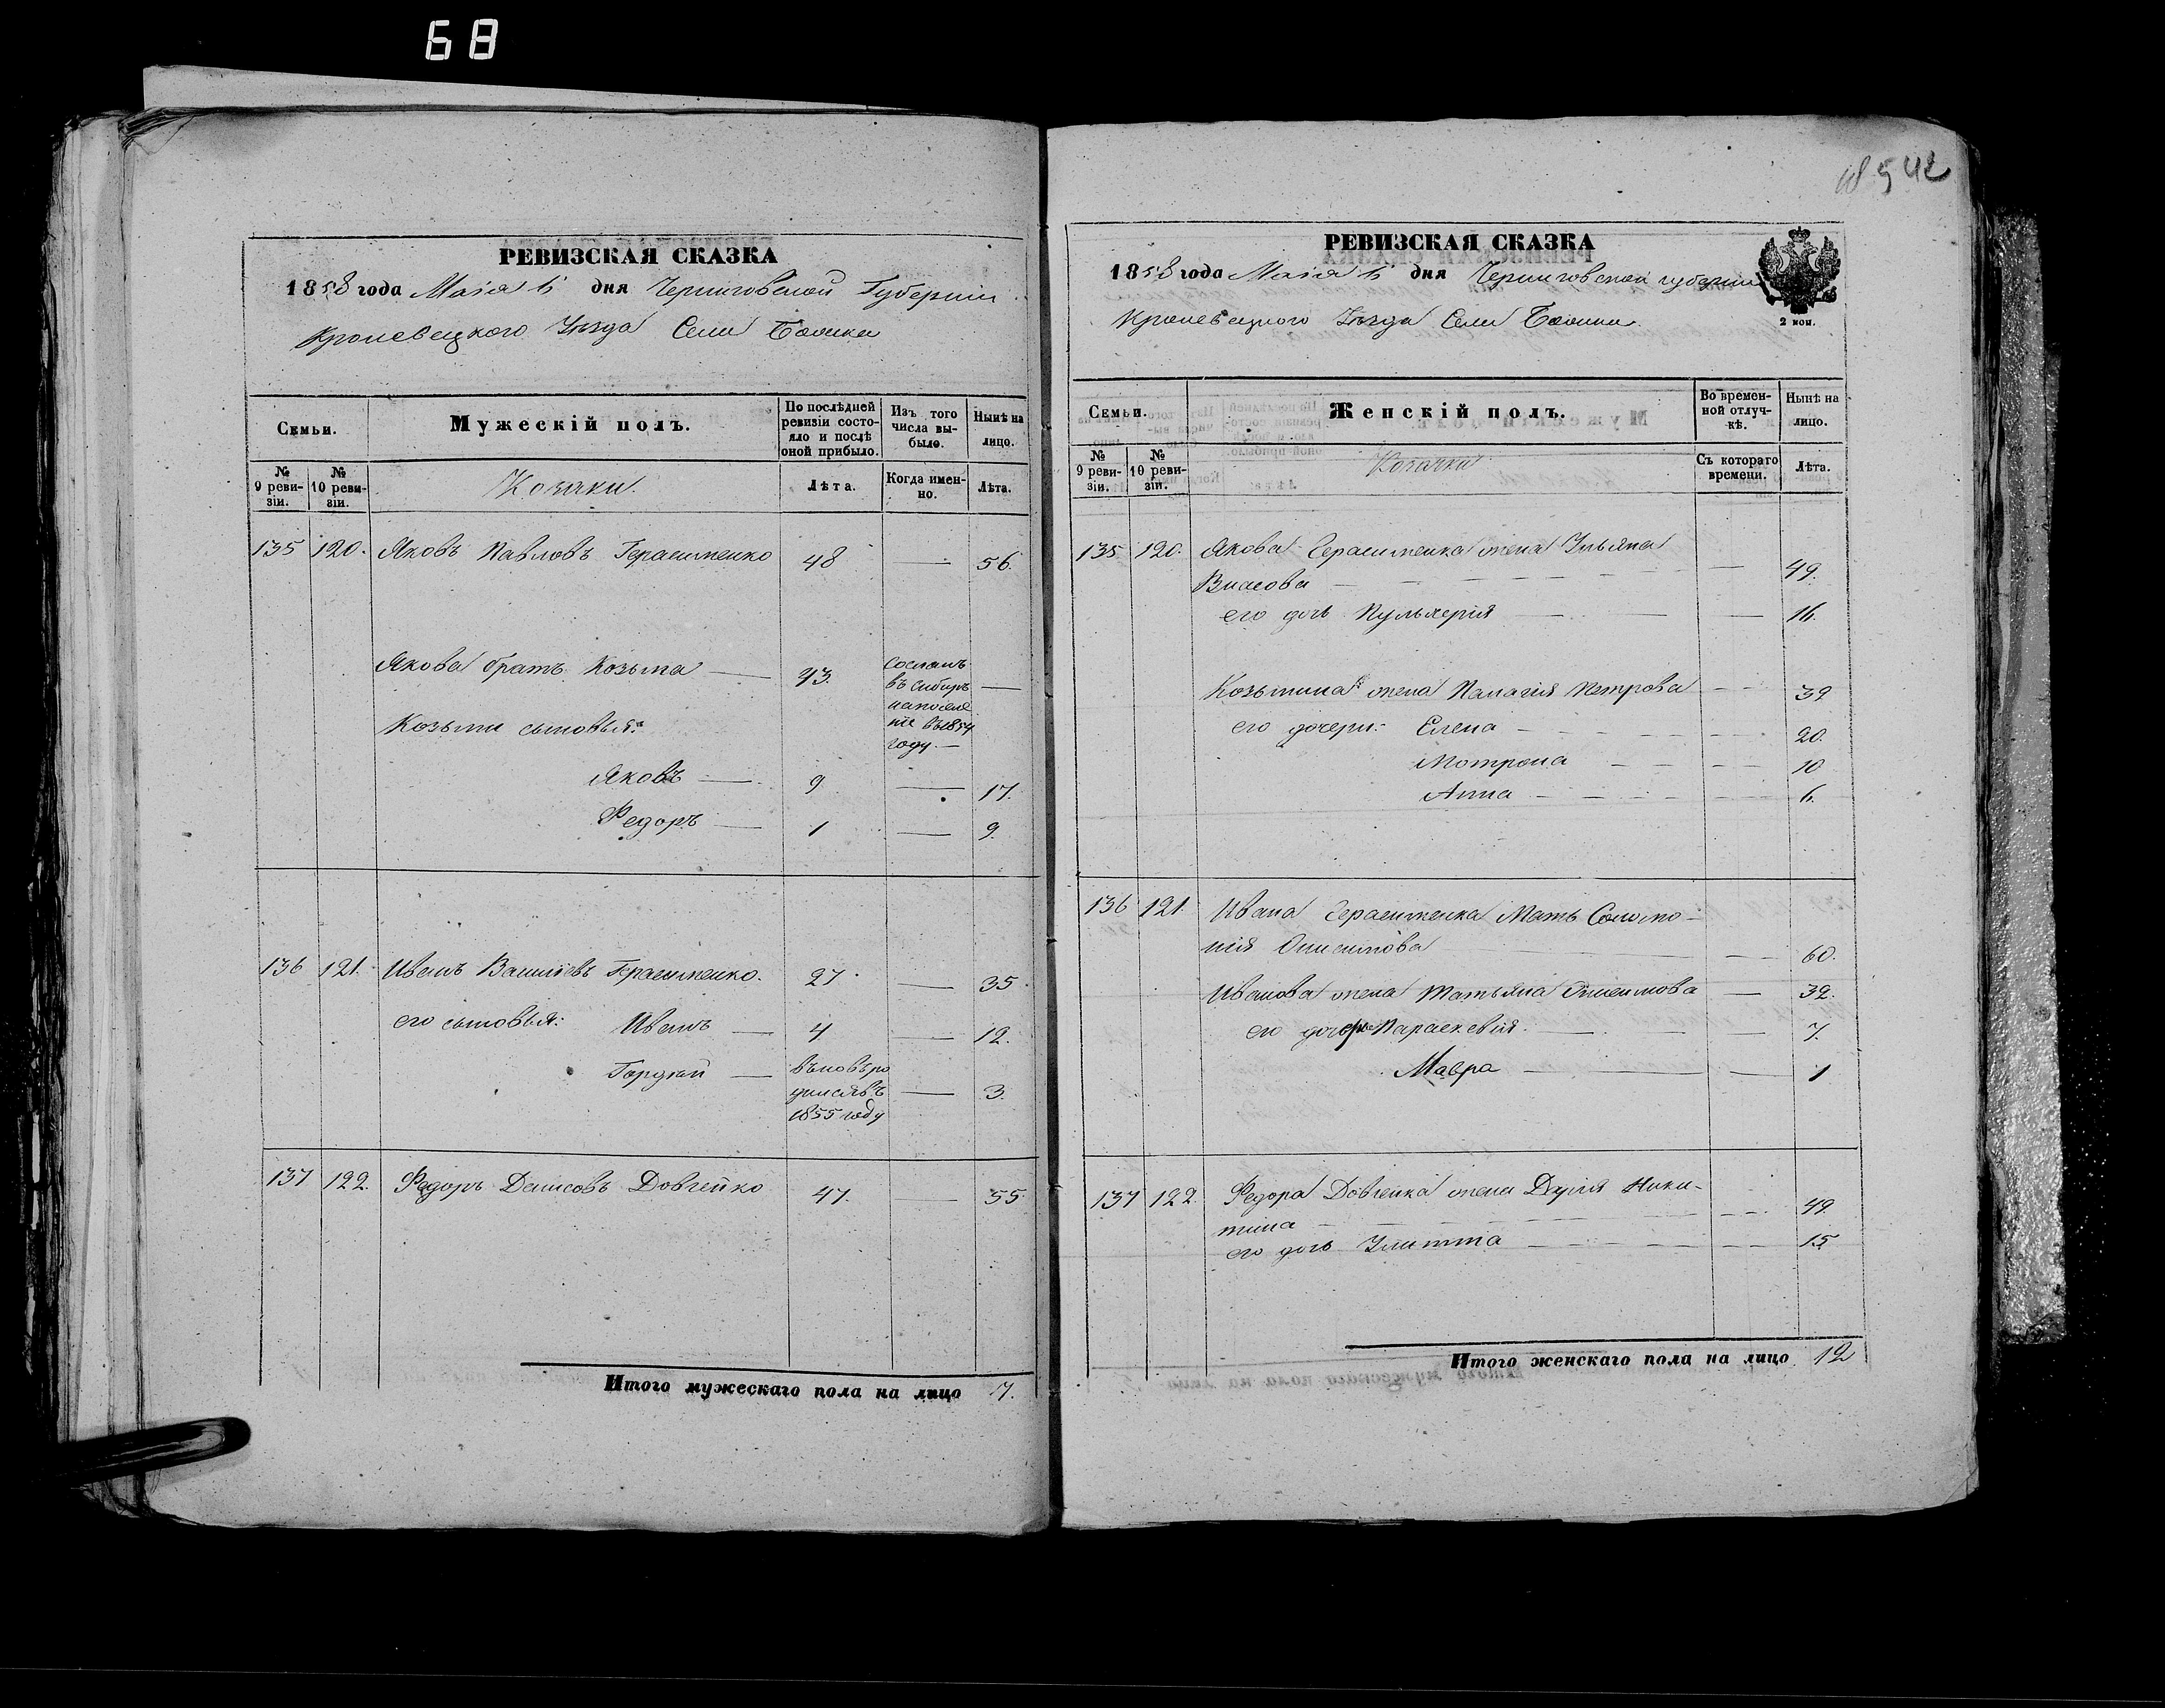 68
РЕВИЗСКАЯ СКАЗКА
1858 года Маія 6 дня Черниговской Губерніи
Кролевецкого Уезда Села
Семьи.
Мужескій полъ.
По послѣдней ревизіи состо-
яло и послѣ оной прибыло.
Изъ того числа вы-
было.
Нынѣ на лицо.
№ 9 реви-
зіи.
№ 10 реви-
зіи.
Козаки.
Лѣта.
Когда имен-
но.
Лѣта.
135 120. Яковъ Павловъ Герасименко 48 — 56.
Якова братъ Козьма — 43. сосланъ
въ Сибирь —
на поселе
ніе въ 1854
году. —
Козьмы сыновья:
Яковъ — 9 — 17.
Федоръ — 1 — 9.
136 121. Иванъ Васильевъ Герасименко. 27. — 35.
его сыновья: Иванъ — 4 — 12.
Гордѣй — вновь ро
дился въ — 3.
1855 году
137 122. Федоръ Денисовъ Довгейко 47. — 55.
Итого мужескаго пола на лицо 7.
542
РЕВИЗСКАЯ СКАЗКА
1858 года Маія 6 дня Черниговской губерніи
Кролевецкого Уезда Села
2 коп.
Семьи.
Женскій полъ.
Во времен-
ной отлуч-
кѣ.
Нынѣ на лицо.
№ 9 реви-
зіи.
№ 10 реви-
зіи.
Козачки
Съ котораго времени.
Лѣта.
135 120. Якова Герасименка жена Ульяна
Власова — — 49.
его дочь Пульхерія — — 16.
Козьмина жена Палагія Петрова — 39
его дочери: Елена — — 20.
Мотрона — — 10
Анна — — 6.
136 121. Ивана Герасименка Мать Соломо-
нія Онисимова — — 60.
Иванова жена Татьяна Онисимова — 32.
его дочери Параскевія — — 7.
Мавра — — 1
137 122. Федора Довгенка жена Дарія Ники-
тина — — 49.
его дочь Улитта — — 15
Итого женскаго пола на лицо 12